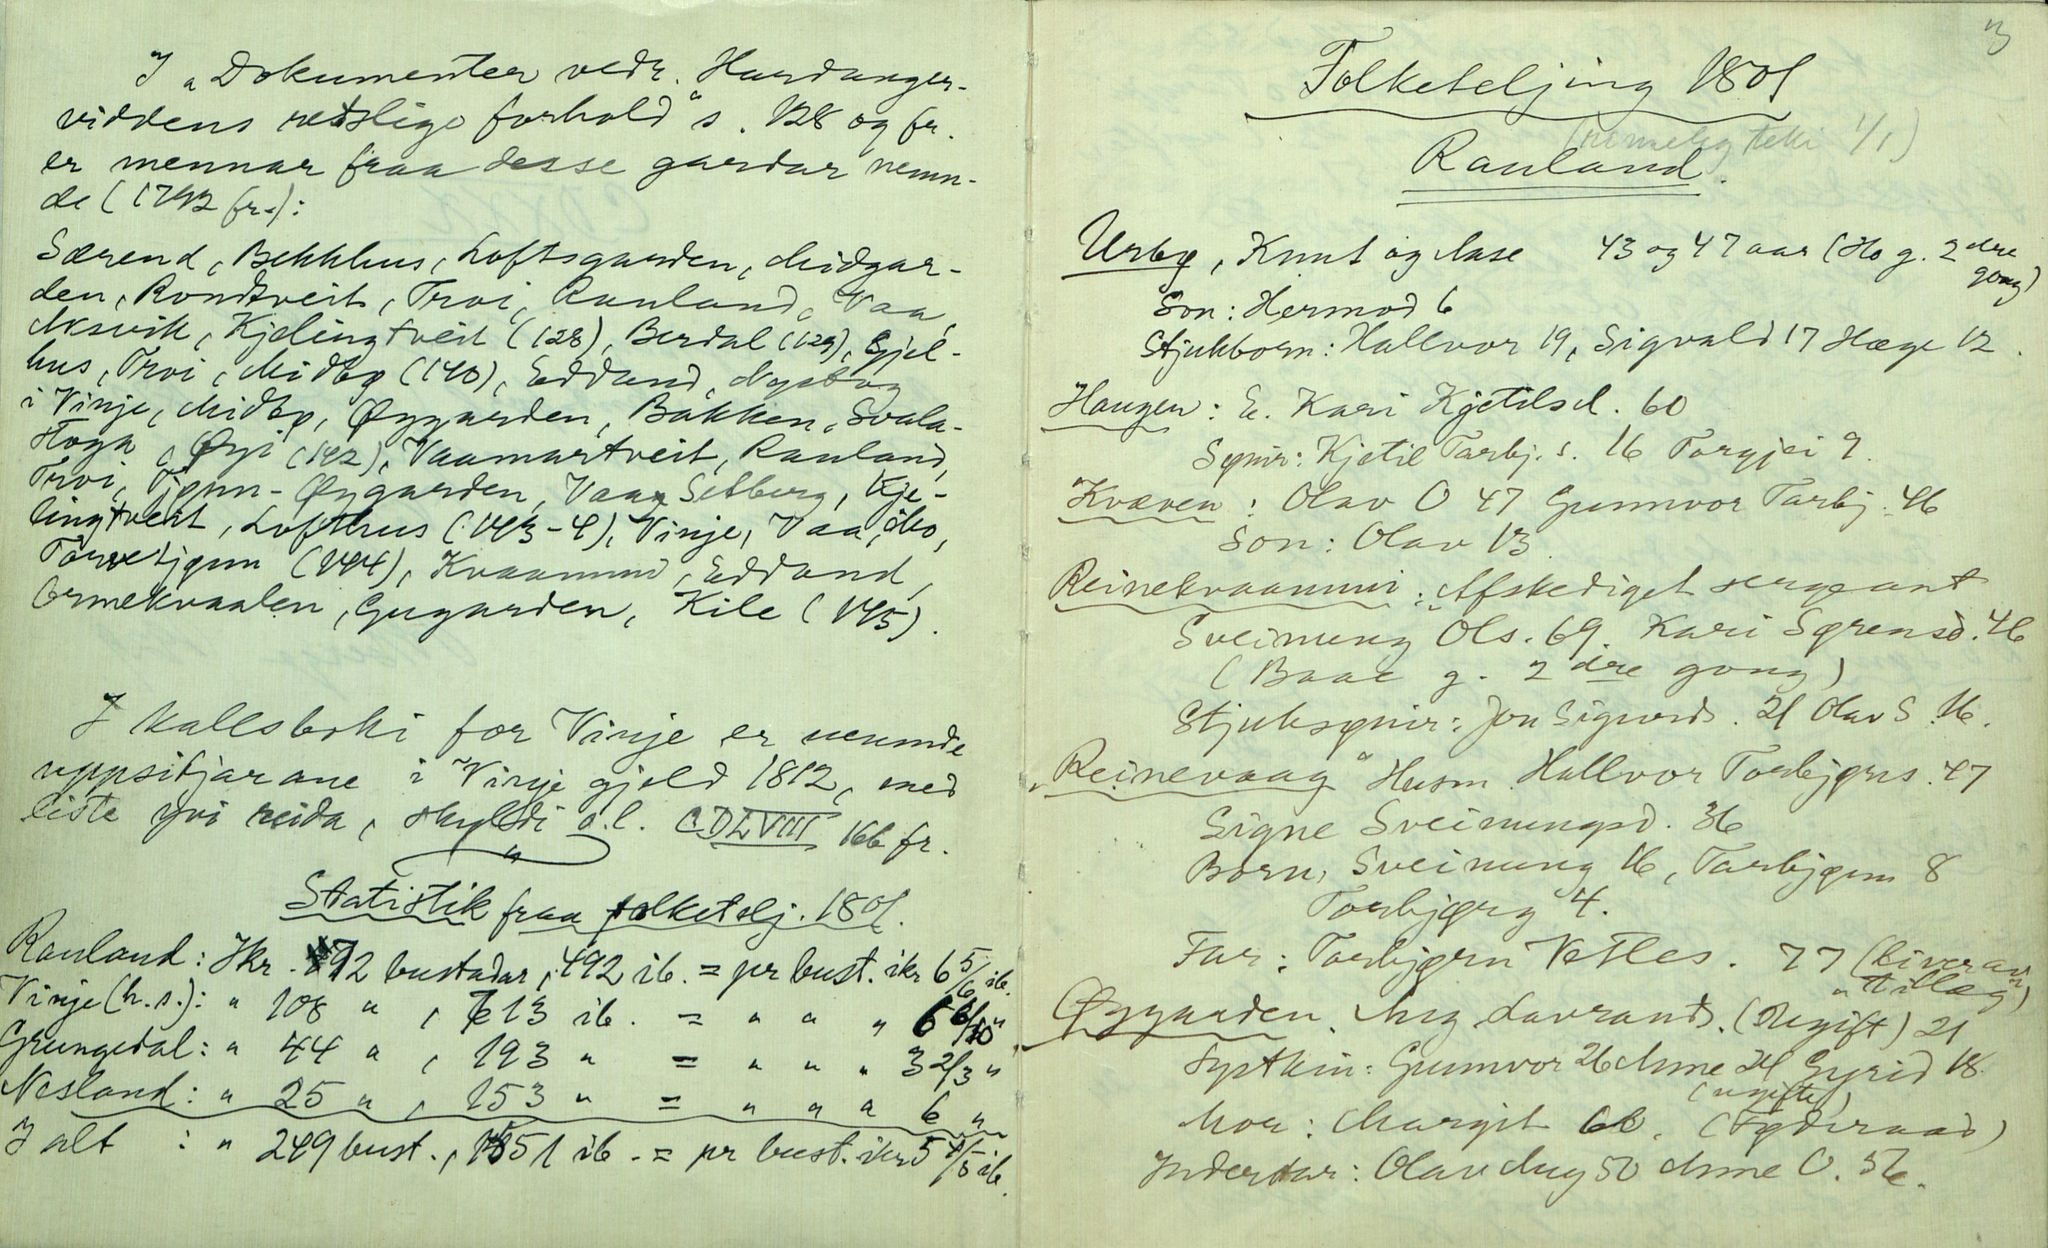 I „Dokumenter vedr. Hardanger-
viddens retslige forhold" s. 128 og fr.
er mennar fraa desse gardar nemn-
de (1742 fr.):
Særend, Bekkhus, Loftsgarden, Midgar-
den, Rondtveit, Trovi, Rauland, Vaa,
Aksvik, Kjelingtveit (128), Berdal (129), Gjel-
hus, Trovi, Midbø (140), Eddand, Nystog
i Vinje, Midbø, Øygarden, Bakken, Svala-
stoga, Øyi (142), Vaamartveit, Rauland,
Trovi, Tjønn-Øygarden, Vaa, Setberg, Kje-
lingtveit, Lofthus (143-4), Vinje, Vaa, Mo,
Torvetjønn (144), Kvaammi, Eddand,
Ormekvaalen, Gugarden, Kile (145).
I kallsboki for Vinje er nemnde
uppsitjarane i Vinje gjeld 1812, med
liste yvi reida, skyldi o.l. CDLVIII 166 fr.
Statistik fraa folketelj. 1801.
Rauland: Ikr. 72 bustadar, 492 ib. = pr bust. ikr 6 5/6 ib.
Vinje (h.s.): " 108 " , 613 ib. = " " "
Grungedal: " 44 " , 193 " = " " " 3 2/3 "
Nesland: " 25 " , 153 " = " " " 6 "
I alt : " 249 bust., 1451 ib. = pr bust. ikr 5 4/5 ib.
3
Folketeljing 1801
(rimeleg teki 1/1)
Rauland.
Urbø, Knut og Aase 43 og 47 aar (Ho g. 2dre
gong)
Son: Hermod 6
Stjukborn: Hallvor 19, Sigvald 17 Hæge 12.
Haugen: E. Kari Kjetilsd. 60
Synir: Kjetil Tarbj. s. 16 Torgjei 9.
Kvæven: Olav O 47 Gunnvor Tarbj. 46
Son: Olav 13
Reinekvaammi: „Afskediget sergeant
Sveinung Ols. 69. Kari Sørensd. 46
(Baae g. 2dre gong)
Stjuksynir: Jon Sigurds. 21 Olav S. 16.
„Reinevaag" Husm. Hallvor Torbjørns. 47
Signe Sveinungsd. 36
Born, Sveinung 16, Tarbjønn 8
Torbjørg 4.
Far: Torbjørn Vetles. 77 (Liver av
„tillæg)
Øygarden. Aag Lavrands. (Ugift) 21
Systkin: Gunnvor 26 Anne 24 Gyrid 18.
(ugifte)
Mor: Margit 66. (Føderaad)
Inderstar: Olav Aag 50 Anne O. 56.